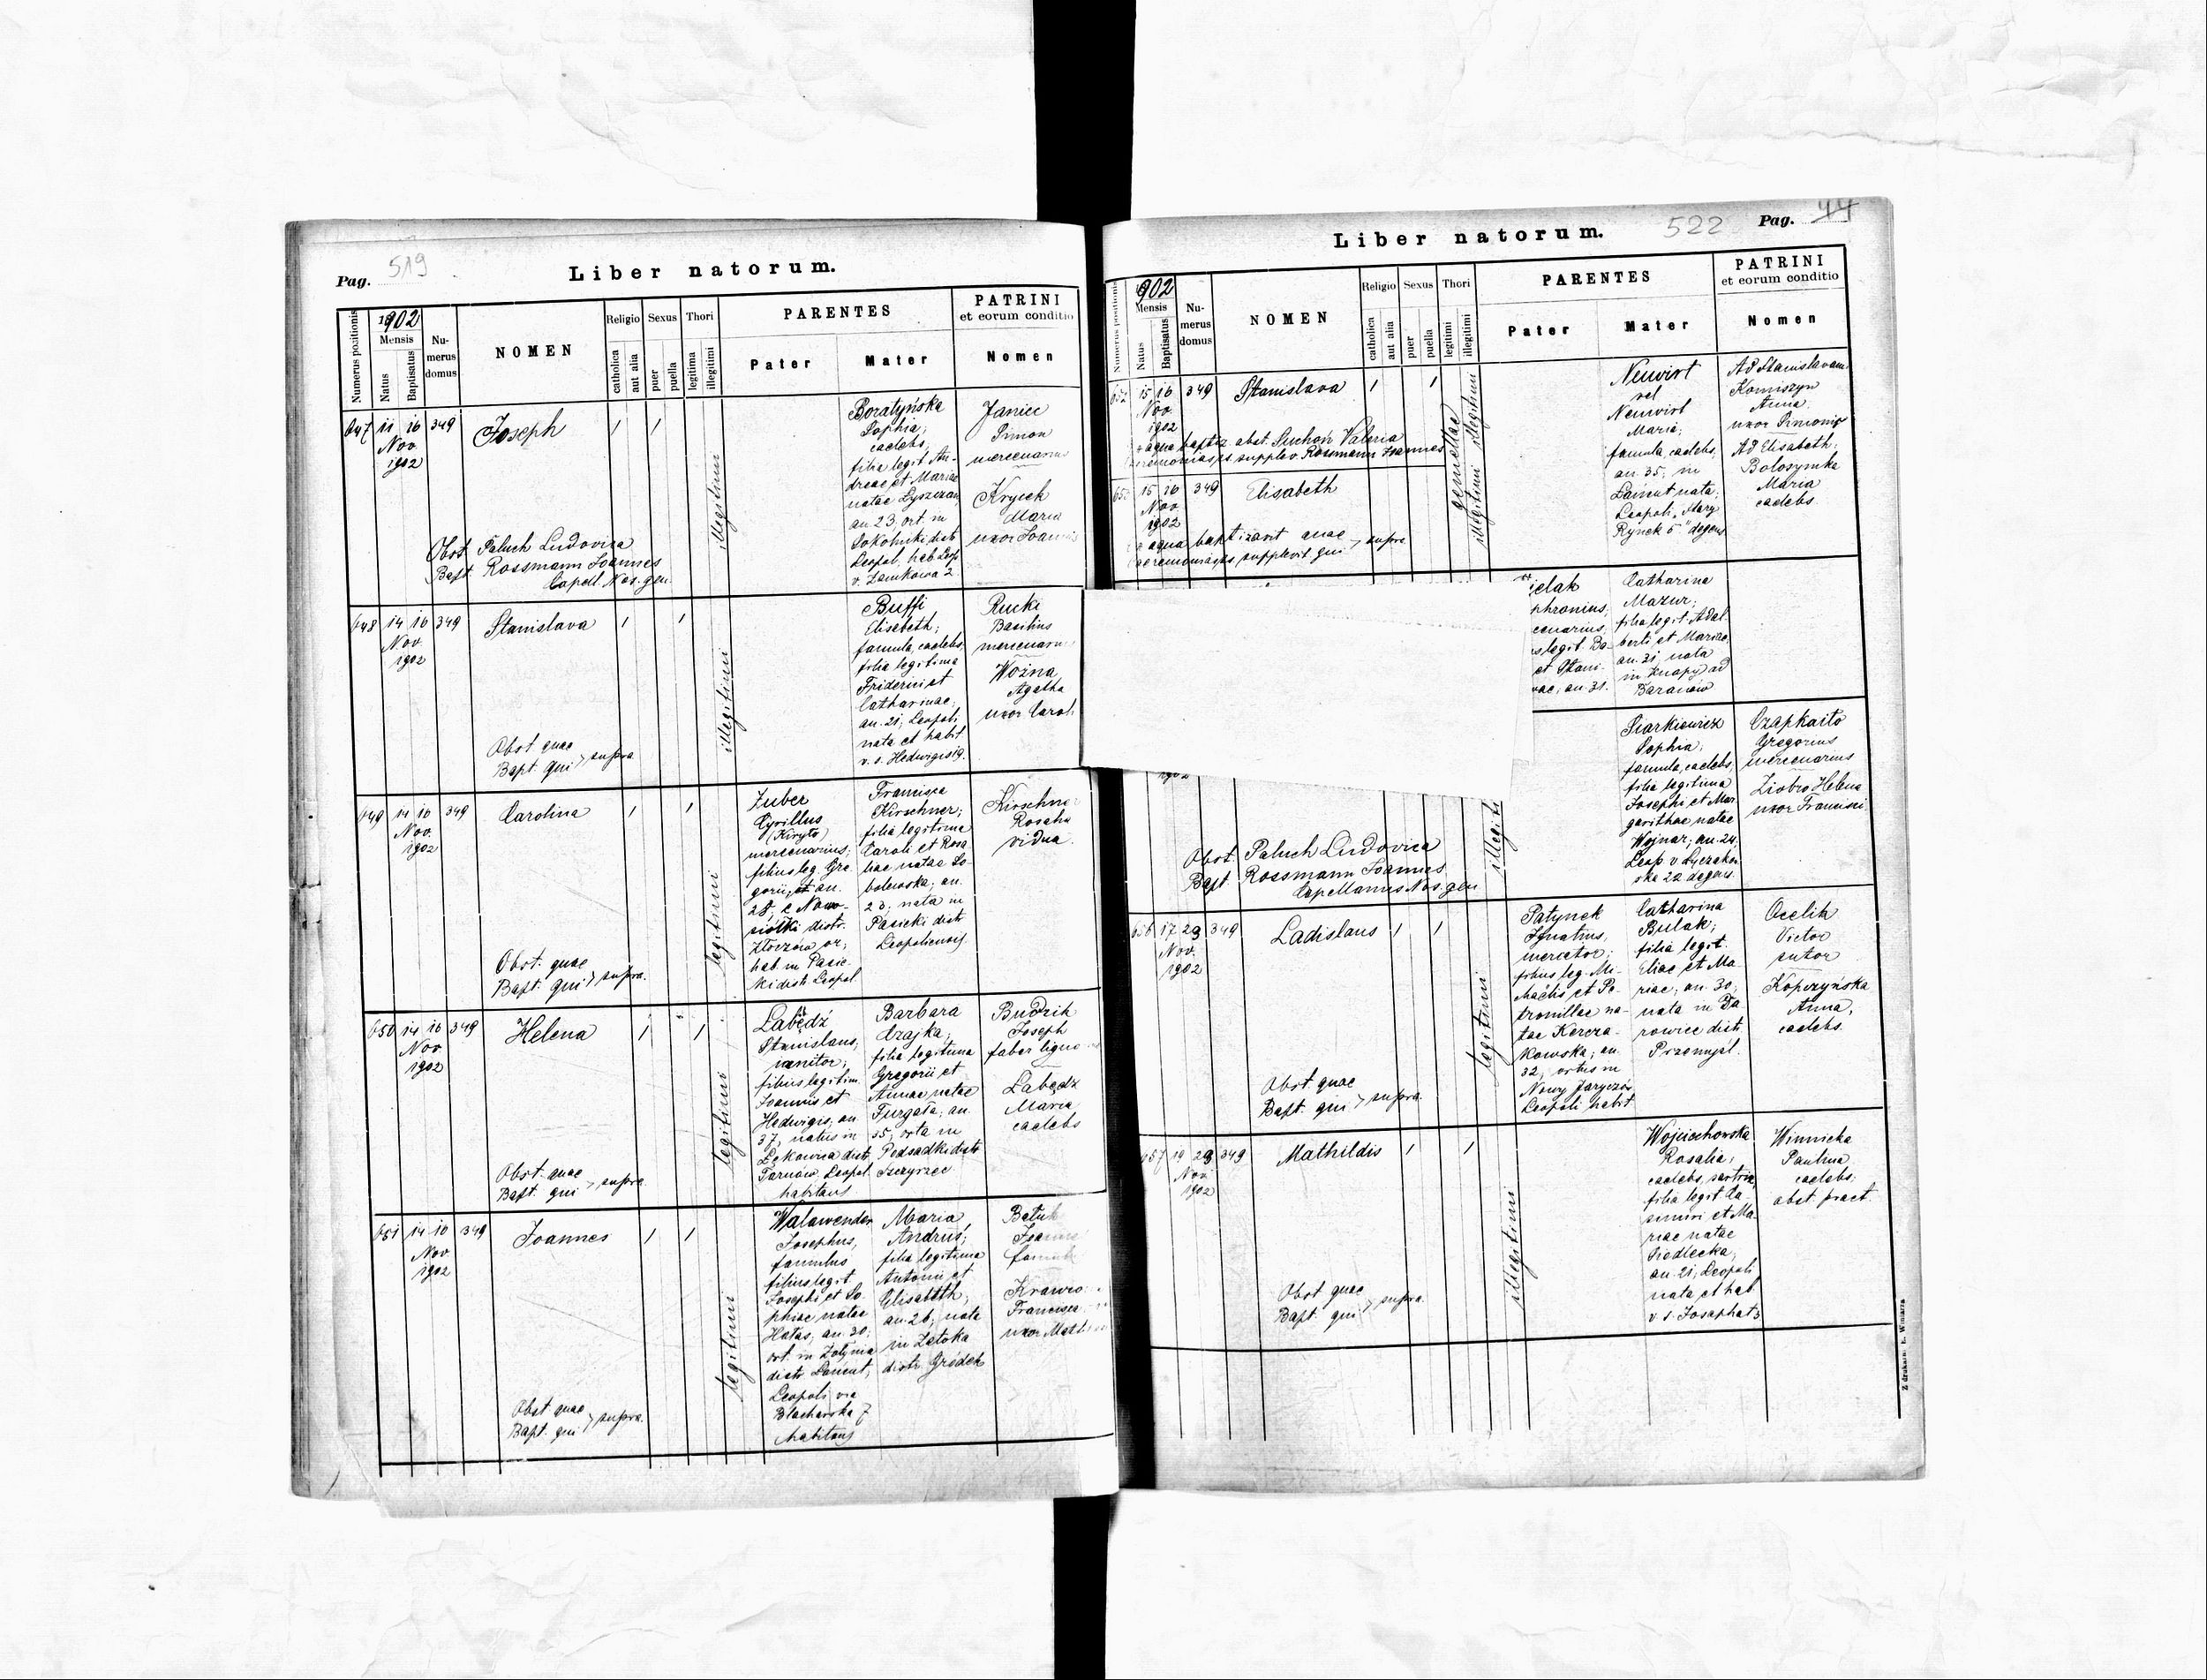 Pag. 519
Liber natorum.
Numerus positionis
1902
Mensis
Natus
Baptisatus
Nu-
merus
domus
NOMEN
Religio
catholica
aut alia
Sexus
puer
puella
Thori
legitima
illegitimi
PARENTES
Pater
Mater
PATRINI
et eorum conditio
Nomen
647 11 16 349 Joseph
Nov.
1902
illegitimi
Boratyńska
Sophia,
caelebs,
filia legit. An-
dreae et Mariae
natae
an 23, ort. in
Sokolniki distr.
Leopol, hab. Leop.
v. Zamkowa 2
Janiec
Simon
mercenarius
Maria
uxor Joannis
Obst. Paluch Ludovica
Bapt. Rossmann Joannes
Capell. Nos. gen.
648 14 16 349 Stanislava
Nov.
1902
illegitimi
Buffi
Elisabeth;
famula, caelebs,
filia legitima
Friderici et
Catharinae,
an. 21, Leopoli
nata et habit.
v. s. Hedwigis 19.
Rucki
Basilius
mercenarius
Woźna
Agatha
uxor Caroli
Obst. quae
Bapt. qui } supra.
649 14 16 349 Carolina
Nov.
1902
legitimi
Zuber
Cyrillus
(Kiryło)
mercenarius;
filius leg. Gre
gorii, et an.
28, e Nowo-
siółki distr.
Złoczów or;
hab. in Pasie-
ki distr. Leopol.
Francisca
Kirschner;
filia legitima
Caroli et Rosa
liae natae So-
bolewska; an.
23; nata in
Pasieki distr.
Leopoliensis.
Kirschner
Rosalia
vidua.
Obst. quae
Bapt. qui } supra.
650 14 16 349 Helena
Nov.
1902
legitimi
Łabędź
Stanislaus,
ianitor;
filius legitim.
Joannis et
Hedwigis, an.
37, natus in
Łękawica distr.
Tarnów, Leopol.
habitans
Barbara
Czajka;
filia legitima
Gregorii et
Annae natae
Furgała; an.
35, orta in
Podsadki distr.
Szczyrzec
Budzik
Joseph
faber lignar
Łabędź
Maria
caelebs
Obst. quae
Bapt. qui } supra.
651 14 16 349 Joannes
Nov.
1902
legitimi
Walawender
Josephus,
famulus
filius legit.
Josephi et So-
phiae natae
Hatas; an. 30;
ort. in Żołynia
distr. Łańcut,
Leopoli via
Blacharska 7
habitans
Maria
Andrus;
filia legitima
Antonii et
Elisabeth;
an. 26, nata
in Zatoka
distr. Gródek
Joannes
famulus
Francisca
uxor
Obst. quae
Bapt. qui } supra.
522 Pag. 44
Liber natorum.
Numerus positionis
1902
Mensis
Natus
Baptisatus
Nu-
merus
domus
NOMEN
Religio
catholica
aut alia
Sexus
puer
puella
Thori
legitimi
illegitimi
PARENTES
Pater
Mater
PATRINI
et eorum conditio
Nomen
652 15 16 349 Stanislava
Nov.
1902
aqua baptiz. obst. Suchoń Valeria
ceremonias supplev. Rossmann Joannes
gemellae
illegitimi illegitimi
Neuwirt
vel
Neuwirt
Maria;
famula, caelebs,
an. 35, in
Łańcut nata;
Leopoli, "Stary
Rynek 5" degens
Ad Stanislavam
Komiszyn
Anna
uxor Simonis
Ad Elisabeth:
Maria
caelebs
15 16 349 Elisabeth
Nov.
1902
aqua baptizavit quae
ceremonias supplevit qui } supra
ielak
phronius,
cenarius,
s legit. Ba-
et Stani-
vae, an. 31.
Catharina
Mazur;
filia legit. Adal-
berti et Mariae,
an. 31, nata
in Knapy ad
Baranów
1902
Siarkiewicz
Sophia;
famula, caelebs,
filia legitima
Josephi et Mar
garithae natae
Wojnar; an. 24,
Leop. v. Łyczakow
ska 22 degens.
Czapkaito
Gregorius
mercenarius
Ziobro Helena
uxor Francisci
Obst. Paluch Ludovica
Bapt. Rossmann Joannes
Capellanus Nos. gen.
656 17 23 349 Ladislaus
Nov.
1902
legitimi
Patynek
Ignatius,
mercator;
filius leg. Mi-
chaelis et Pe-
tronillae na-
tae Kercza-
kowska; an.
32, ortus in
Nowy Jaryczów
Leopoli habit.
Catharina
Bulak;
filia legit.
Eliae et Ma-
riae, an. 30,
nata in Da-
rowice distr.
Przemyśl.
Ocelik
Victor
sutor
Kopczyńska
Anna,
caelebs.
Obst. quae
Bapt. qui } supra.
657 19 23 349 Mathildis
Nov.
1902
illegitimi
Wojciechowska
Rosalia;
caelebs, sartrix,
filia legit. Ca-
simiri et Ma-
riae natae
Siedlecka,
an. 21, Leopoli
nata et hab.
v. s. Josaphat 3
Winnicka
Paulina
caelebs,
obst. pract.
Obst. quae
Bapt. qui } supra.
Z drukarn. E. Winiarza.